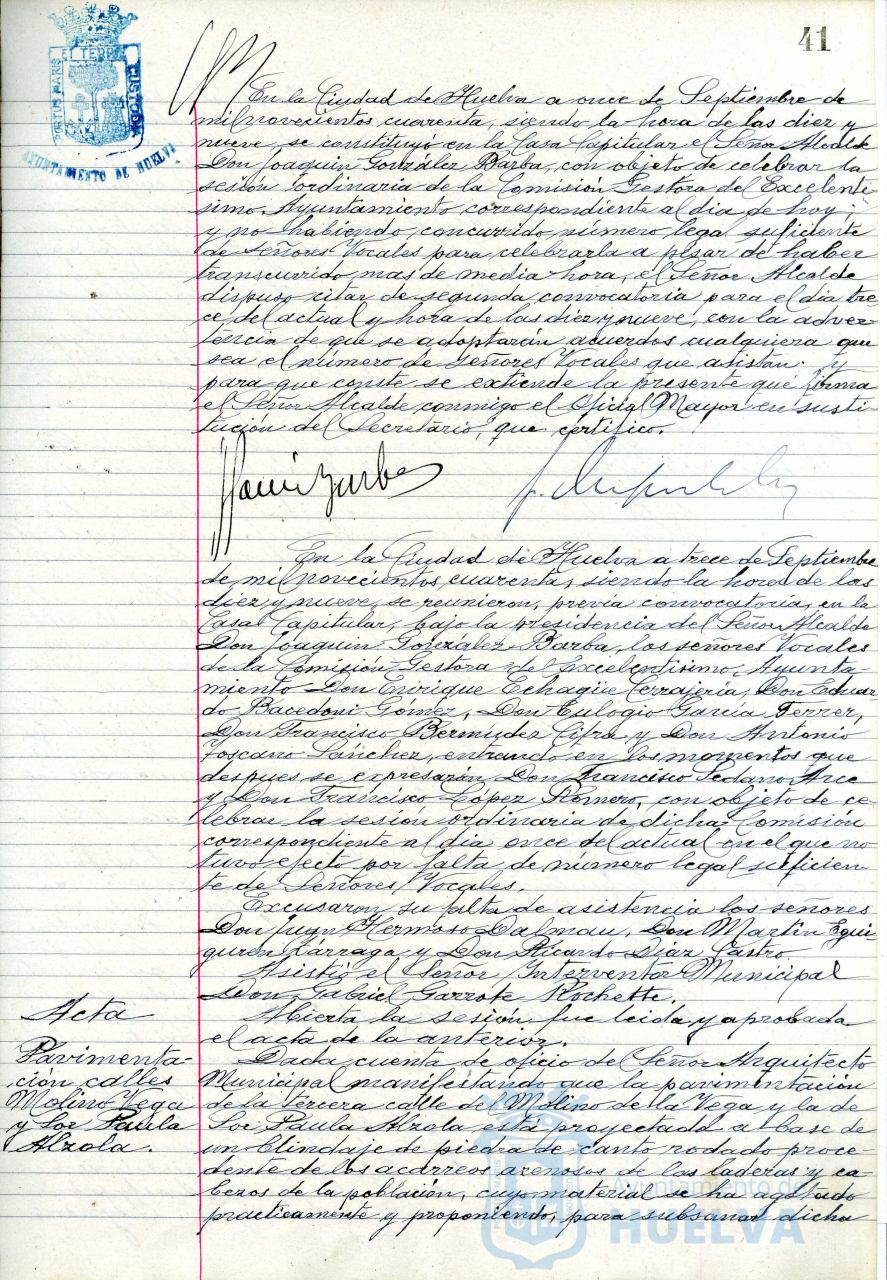 41
PORTUS MARIS ET TERRÆ CUSTODIA
AYUNTAMIENTO DE HUELVA
En la Ciudad de Huelva a once de Septiembre de
mil novecientos cuarenta, siendo la hora de las diez y
nueve, se constituyó en la Casa Capitular el Señor Alcalde
Don Joaquin González Barba, con objeto de celebrar la
sesión ordinaria de la Comisión Gestora del Excelentí-
simo Ayuntamiento correspondiente al dia de hoy;
y no habiendo concurrido número legal suficiente
de señores Vocales para celebrarla a pesar de haber
transcurrido mas de media hora, el Señor Alcalde
dispuso citar de segunda convocatoria para el dia tre-
ce del actual y hora de las diez y nueve, con la adver-
tencia de que se adoptarán acuerdos cualquiera que
sea el número de Señores Vocales que asistan; y
para que conste se extiende la presente que firma
el Señor Alcalde conmigo el Oficial Mayor en susti-
tución del Secretario, que certifico.
En la Ciudad de Huelva a trece de Septiembre
de mil novecientos cuarenta, siendo la hores de las
diez y nueve, se reunieron, previa convocatoria, en la
Casa Capitular, bajo la presidencia del Señor Alcalde
Don Joaquin González Barba, los señores Vocales
de la Comisión Gestora del Excelentísimo Ayunta-
miento Don Enrique Echagüe Cerrajería, Don Eduar-
do Bacedoni Gómez, Don Eulogio García Ferrer,
Don Francisco Bermudez Cifra y Don Antonio
Toscano Sánchez, entrando en los momentos que
despues se expresarán Don Francisco Sedano Arce
y Don Francisco López Romero, con objeto de ce-
lebrar la sesión ordinaria de dicha Comisión
correspondiente al dia once del actual en el que no
tuvo efecto por falta de número legal suficien-
te de Señores Vocales.
Excusaron su falta de asistencia los señores
Don Juan Hermoso Dalmau, Don Martín Egui-
guren Lárraga y Don Ricardo Díaz Castro.
Asistió el Señor Interventor Municipal
Don Gabriel Garrote Rochette.
Acta
Abierta la sesión fue leida y aprobada
el acta de la anterior.
Pavimenta-
ción calles
Molino Vega
y Sor Paula
Alzola.
Dada cuenta de oficio del Señor Arquitecto
Municipal manifestando que la pavimentación
de la tercera calle del Molino de la Vega y la de
Sor Paula Alzola, está proyectada a base de
un blindaje de piedra de canto rodado proce-
dente de los acarreos arenosos de las laderas y ca-
bezos de la población, cuyo material se ha agotado
practicamente y proponiendo, para subsanar dicha
Ayuntamiento de
HUELVA